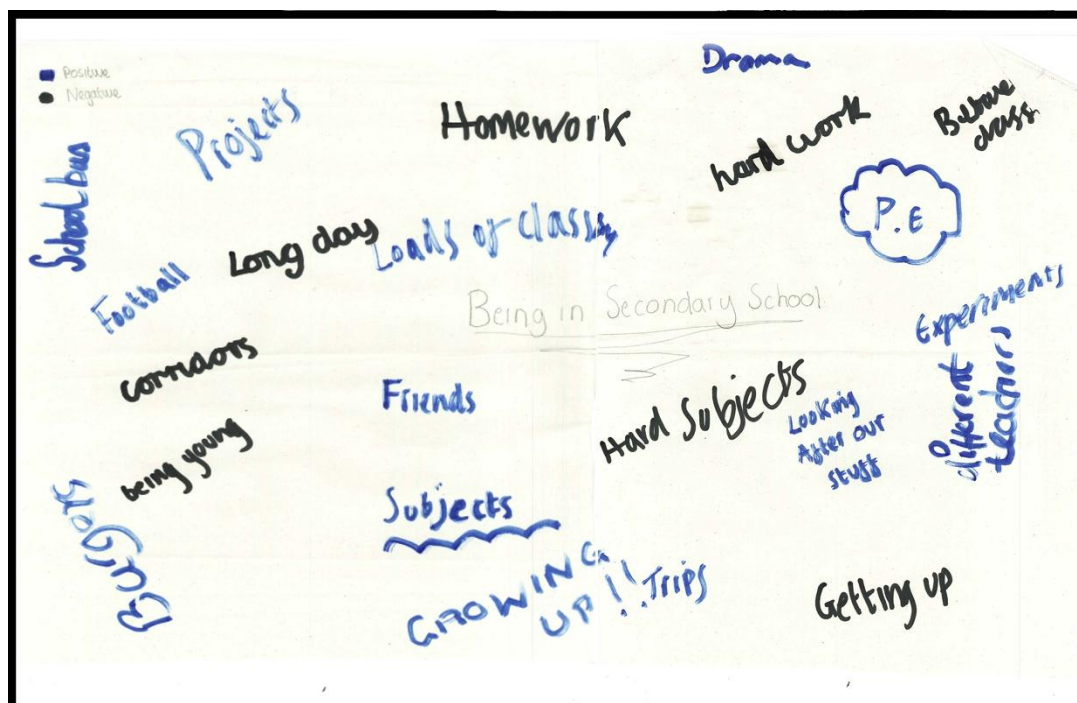 Positive
Negative
Drama
Projects
Homework
hard work
class
School bus
P.E
Long day
Loads of
Football
Being in Secondary School
Experiments
different
teachers
corridors
Friends
Hard Subjects
Looking
After our
stuff
being young
Subjects
BurGers
GROWING
UP!!
Trips
Getting up